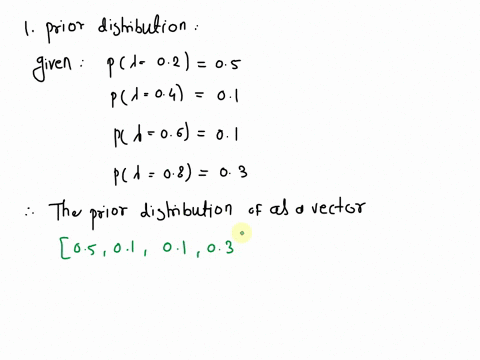 1. prior distribution:
given: p(λ= 0.2) = 0.5
p(λ=0.4) = 0.1
p(λ=0.6) = 0.1
p(λ = 0.8) = 0.3
∴ The prior distribution of as a vector
[0.5, 0.1, 0.1, 0.3